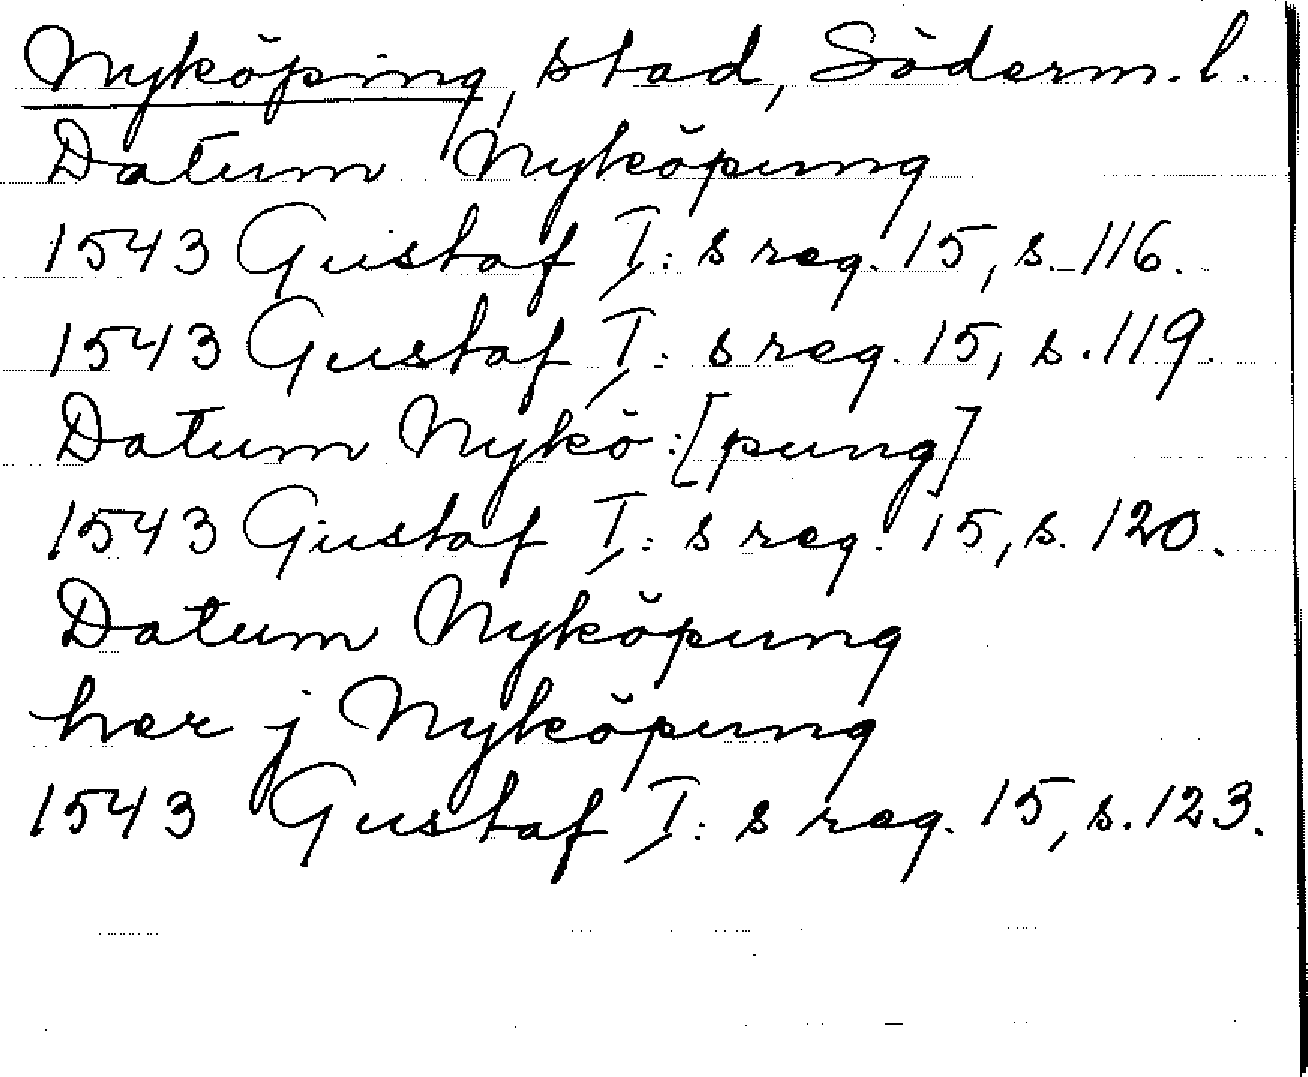 Nyköping, stad, Söderm. l.
Datum Nyköpung
1543 Gustaf I:s reg. 15, s. 116.
1543 Gustaf I:s reg. 15, s. 119.
Datum Nykö:[pung]
1543 Gustaf I:s reg. 15, s. 120.
Datum Nyköpung
her j Nyköpung
1543 Gustaf I:s reg. 15, s. 123.